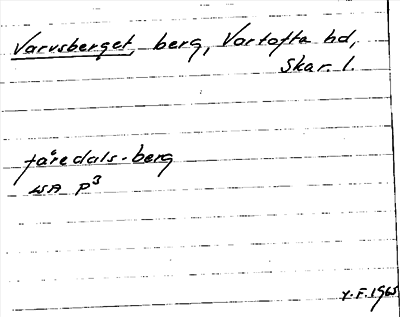 Varvsberget, berg, Vartofta hd,
Skar. l.
fåredals-berg
LSA P3
Y.F. 1965